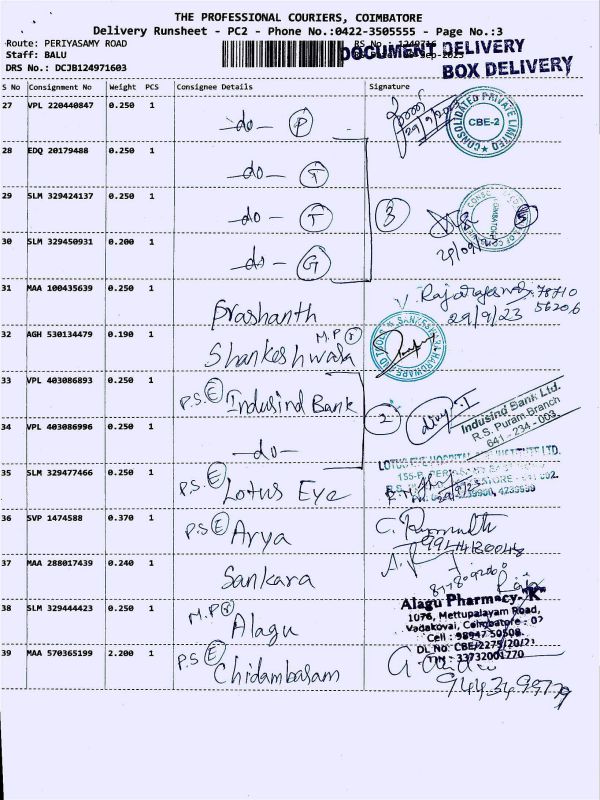 THE PROFESSIONAL COURIERS, COIMBATORE
Delivery Runsheet - PC2 - Phone No.:0422-3505555 - Page No.:3
Route: PERIYASAMY ROAD
Staff: BALU
DRS No.: DCJB124971603
DOCUMENT DELIVERY
BOX DELIVERY
S No Consignment No Weight PCS Consignee Details Signature
27 VPL 220440847 0.250 1 -do- P
29/9/23
CONSOLIDATED PRIVATE LIMITED
CBE-2
28 EDQ 20179488 0.250 1 -do- T
29 SLM 329424137 0.250 1 -do- T
3
5
30 SLM 329450931 0.200 1 -do- G
31 MAA 100435639 0.250 1 Prashanth
29/9/23
32 AGH 530134479 0.190 1 M.P T Shankeshwara
33 VPL 403086893 0.250 1 P.S E Indusind Bank
2
Indusind Bank Ltd.
R.S. Puram-Branch
641 - 234 - 003.
34 VPL 403086996 0.250 1 -do-
35 SLM 329477466 0.250 1 P.S E Lotus Eye
36 SVP 1474588 0.370 1 P.S E Arya
37 MAA 288017439 0.240 1 Sankara
38 SLM 329444423 0.250 1 M.P T Alagu
Alagu Pharmacy-"K"
1076, Mettupalayam Road,
Vadakovai, Coimbatore - 02
Cell : 98947 50508.
DL No: CBE/2275/20/21
TIN - 33732001770
39 MAA 570365199 2.200 1 P.S E Chidambaram